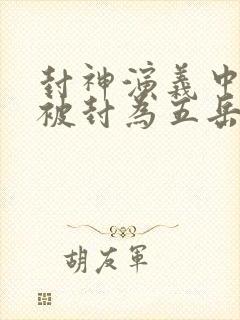 封神演義中
被封為五岳
胡友軍